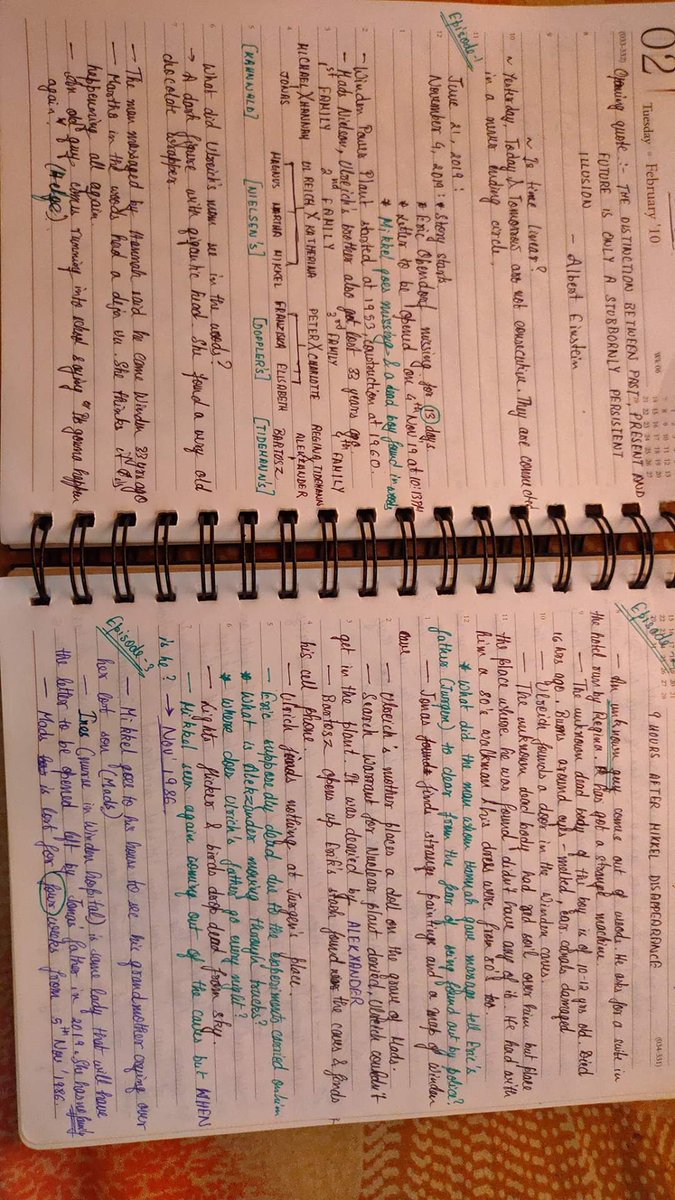 02
Tuesday • February '10
WK 06
(033-332)
Opening quote :- THE DISTINCTION BETWEEN PAST, PRESENT AND
FUTURE IS ONLY A STUBBORNLY PERSISTENT
ILLUSION
- Albert Einstein
~ Is time linear?
~ Yesterday, Today & Tomorrow are not consecutive. They are connected
in a never ending circle.
Episode-1
June 21, 2019 :
November 4, 2019 : * Story start
* Eric Obendorf missing for 13 days.
* Letter to be opened on 4th Nov 19 at 10:13PM
* Mikkel goes missing & a dead boy found in woods
- Winden Power Plant started at 1953, construction at 1960.
- Mads Nielsen, Ulreich's brother also got lost 33 years ago
1st FAMILY 2nd FAMILY 3rd FAMILY 4th FAMILY
MICHAEL X HANNAH ULREICH X KATHERINA PETER X CHARLOTTE REGINA TIDEMANN
X
ALEXANDER
JONAS MAGNUS MARTHA MIKKEL FRANZISKA ELISABETH BARTOSZ
[KAHNWALD] [NIELSEN'S] [DOPPLER'S] [TIDEMANN'S]
What did Ulreich's mom see in the woods?
→ A dark figure with gigantic head. She found a very old
chocolate wrapper.
- The man massaged by Hannah said he came Winden 33 yrs ago
- Martha in the woods had a deja vu. She thinks it is
happening all again.
- An old guy comes running into school saying "Its gonna happen
again" (Helge)
(034-331)
Episode
9 HOURS AFTER MIKKEL DISAPPEARANCE
- An unknown guy comes out of woods. He asks for a suite in
the hotel run by Regina. He has got a strange machine.
- The unknown dead body of the boy is of 10-12 yrs old. Died
16 hrs ago. Burns around eyes - melted, ear canals damaged
- Ulreich founds a door in the Winden caves.
- The unknown dead body had red soil over him but place
the place where he was found didn't have any of it. He had with
him a 80's walkman & his dress were from 80's too.
* What did the man whom Hannah gave massage tell Eric's
father (Jurgen) to clear from the fear of being found out by police?
- Jonas finds strange paintings and a map of Winden
cave
- Ulreich's mother places a doll on the grave of Mads.
- Search warrant for Nuclear plant denied, Ulreich couldn't
get in the plant. It was denied by ALEXANDER
- Bartosz opens up Erik's stash found near the caves & finds
his cell phone.
- Ulrich finds nothing at Jurgen's place.
- Eric supposedly died due to the experiments carried on him
* What is Alekzander moving through trucks?
* Where does Ulrich's father go every night?
- Lights flicker & birds drop dead from sky
- Mikkel seen again coming out of the caves but WHEN
is he? → Nov' 1986
Episode-3
- Mikkel goes to his house to see his grandmother crying over
her lost son (Mads)
- Ines (nurse in Winden hospital) is same lady that will have
the letter to be opened left by Jonas father in 2019. She has no family
- Mads is lost for four weeks from 5th Nov' 1986.